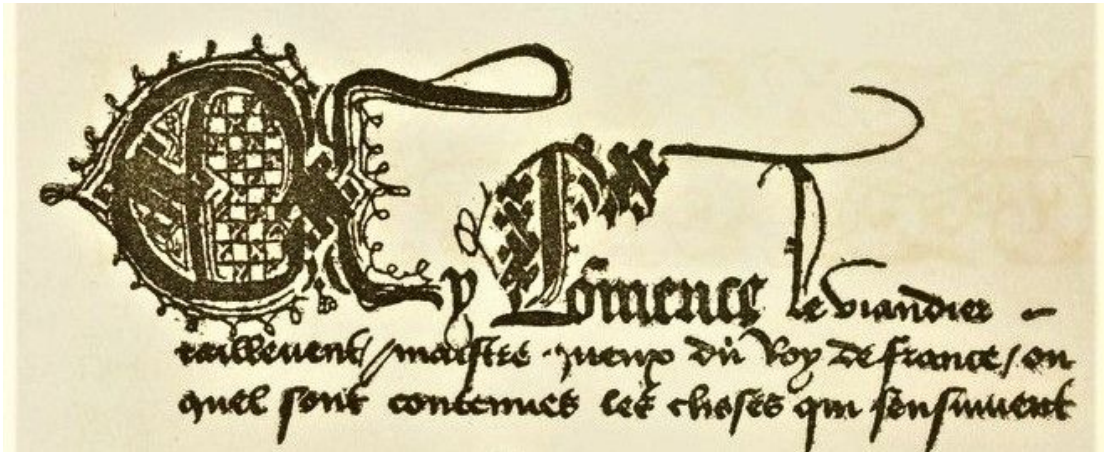 Cy Comence le viandier
taillevent / maistre queux du Roy de france / ou
quel sont contenues les choses qui sensuiuent